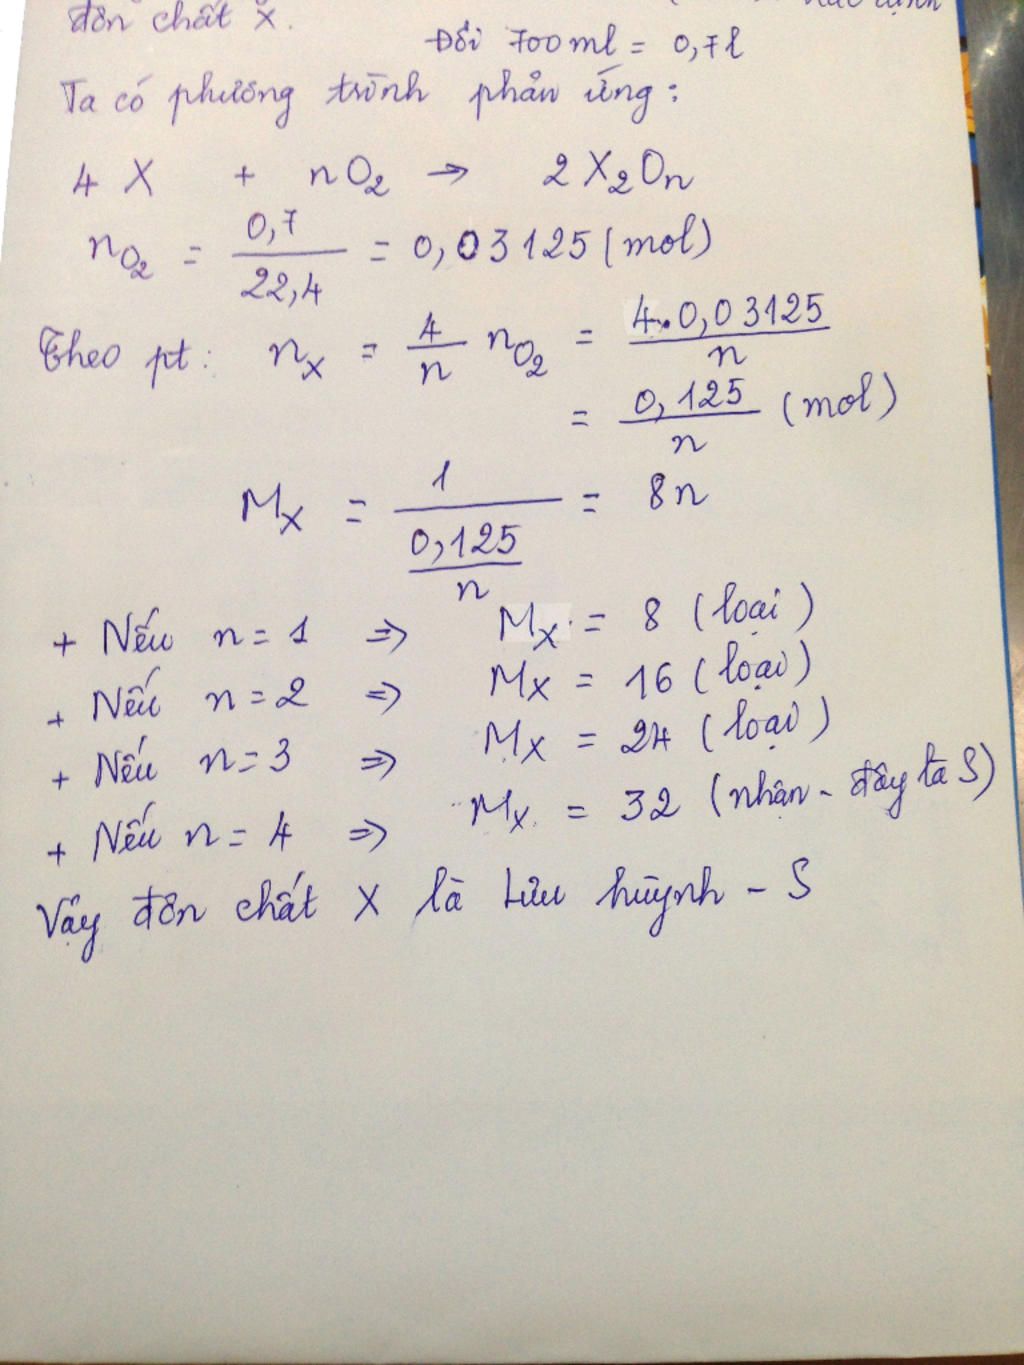 đơn chất X.
Đổi 700ml = 0,7l
Ta có phương trình phản ứng:
4 X + nO2 → 2 X2On
nO2 = 0,7 / 22,4 = 0,03125 (mol)
Theo pt: nX = 4/n nO2 = 4.0,03125 / n
= 0,125 / n (mol)
MX = 1 / (0,125 / n) = 8n
+ Nếu n = 1 => MX = 8 (loại)
+ Nếu n = 2 => MX = 16 (loại)
+ Nếu n = 3 => MX = 24 (loại)
+ Nếu n = 4 => MX = 32 (nhận - đây là S)
Vậy đơn chất X là Lưu huỳnh - S